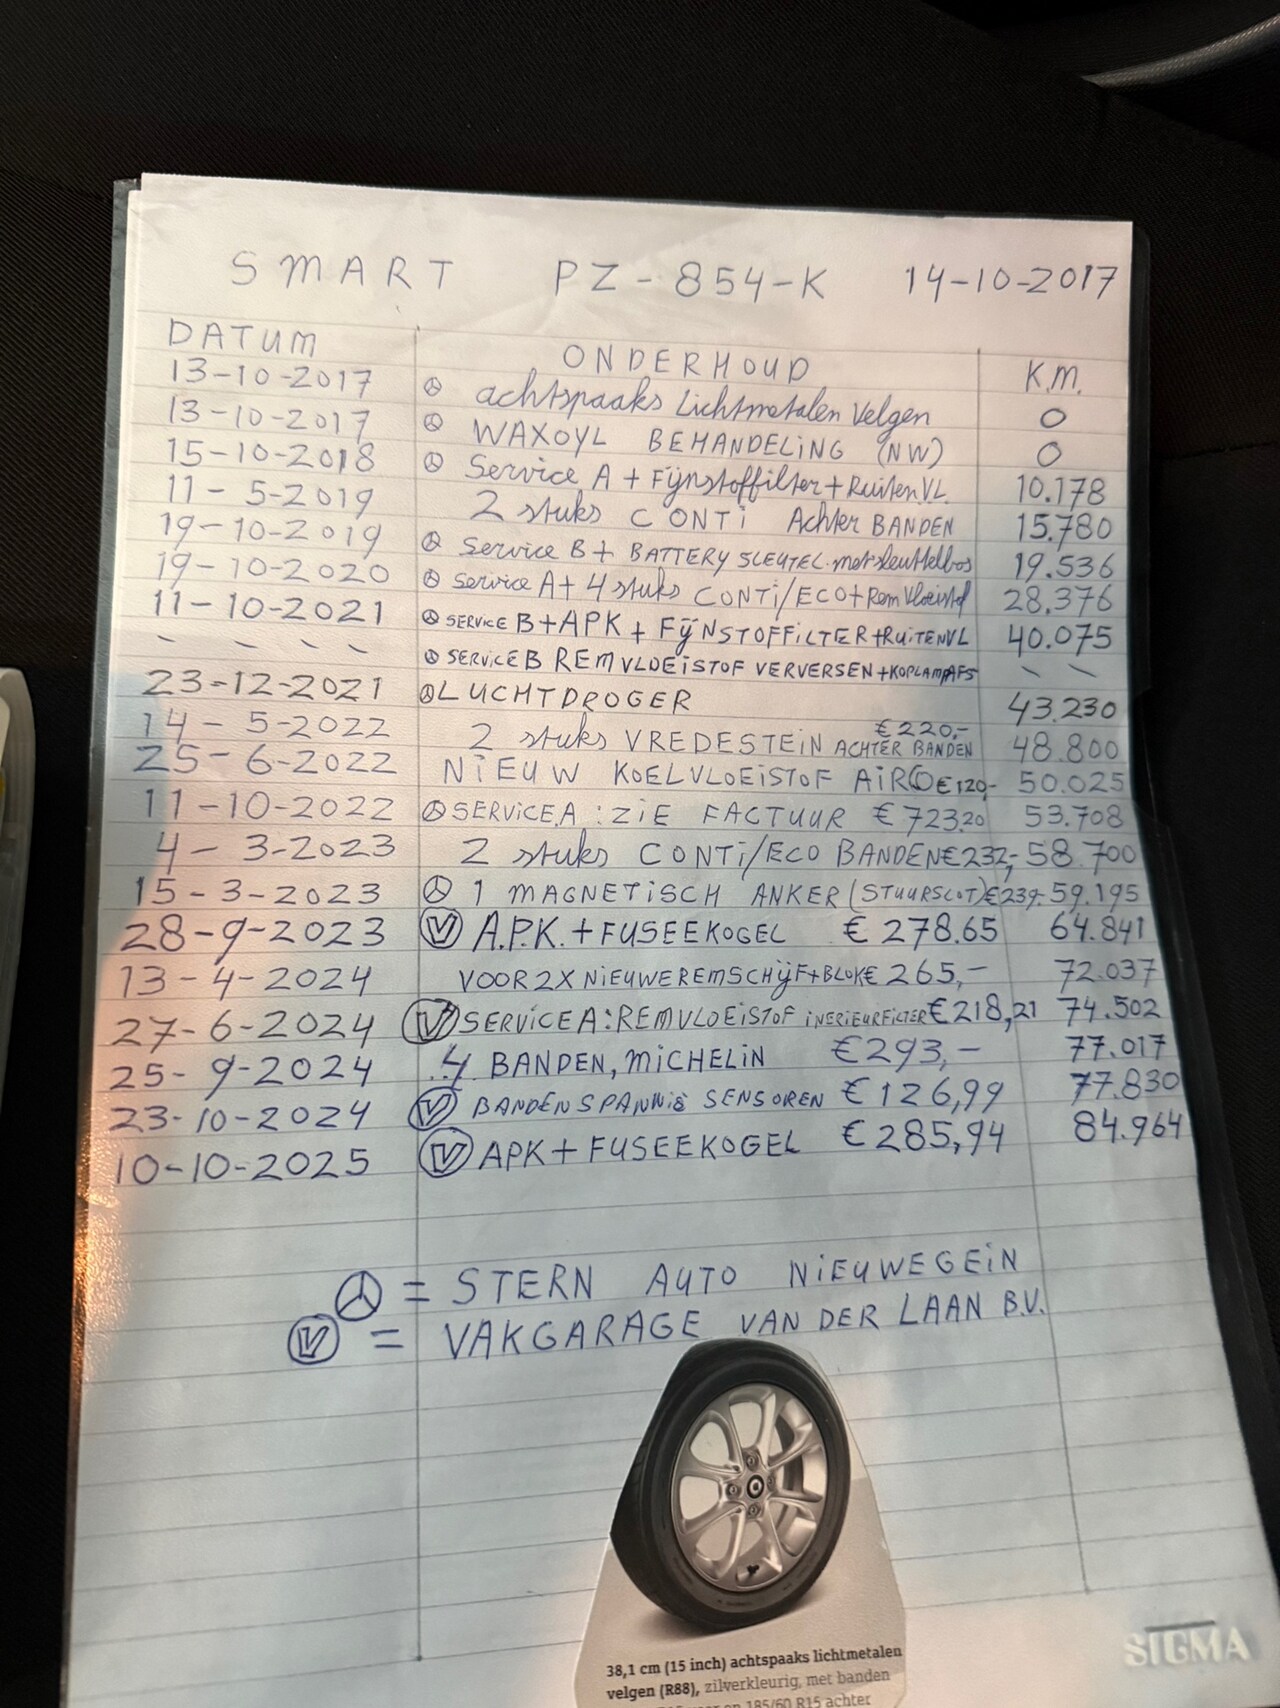 SMART PZ-854-K 14-10-2017
DATUM ONDERHOUD K.M.
13-10-2017 achtspaaks Lichtmetalen Velgen 0
13-10-2017 WAXOYL BEHANDELING (NW) 0
15-10-2018 Service A + Fijnstoffilter + RuitenVL 10.178
11-5-2019 2 stuks CONTi Achter BANDEN 15.780
19-10-2019 Service B + BATTERY SLEUTEL met sleutelbos 19.536
19-10-2020 Service A + 4 stuks CONTi/ECO + RemVloeistof 28.376
11-10-2021 SERViCE B + APK + FijNSTOFFiLTER + RUiTENVL 40.075
\ \ \ \ SERViCE B REMVLOEiSTOF VERVERSEN + KOPLAMPAFS \ \
23-12-2021 LUCHTDROGER 43.230
14-5-2022 2 stuks VREDESTEiN ACHTER BANDEN €220,- 48.800
25-6-2022 NiEUW KOELVLOEiSTOF AiRCO €120,- 50.025
11-10-2022 SERViCE A : ZiE FACTUUR €723,20 53.708
4-3-2023 2 stuks CONTi/ECO BANDEN €232,- 58.700
15-3-2023 1 MAGNETiSCH ANKER (STUURSLOT) €239,- 59.195
28-9-2023 A.P.K. + FUSEEKOGEL €278.65 64.841
13-4-2024 VOOR 2X NiEUWE REMSCHijF + BLOK €265,- 72.037
27-6-2024 SERViCE A: REMVLOEiSTOF iNERiEURFiLTER €218,21 74.502
25-9-2024 4 BANDEN, MiCHELiN €293,- 77.017
23-10-2024 BANDENSPANNiG SENSOREN €126,99 77.830
10-10-2025 APK + FUSEEKOGEL €285,94 84.964
= STERN AUTO NiEUWEGEiN
V = VAKGARAGE VAN DER LAAN B.V.
38,1 cm (15 inch) achtspaaks lichtmetalen
velgen (R88), zilverkleurig, met banden
185/60 R15 achter
SIGMA